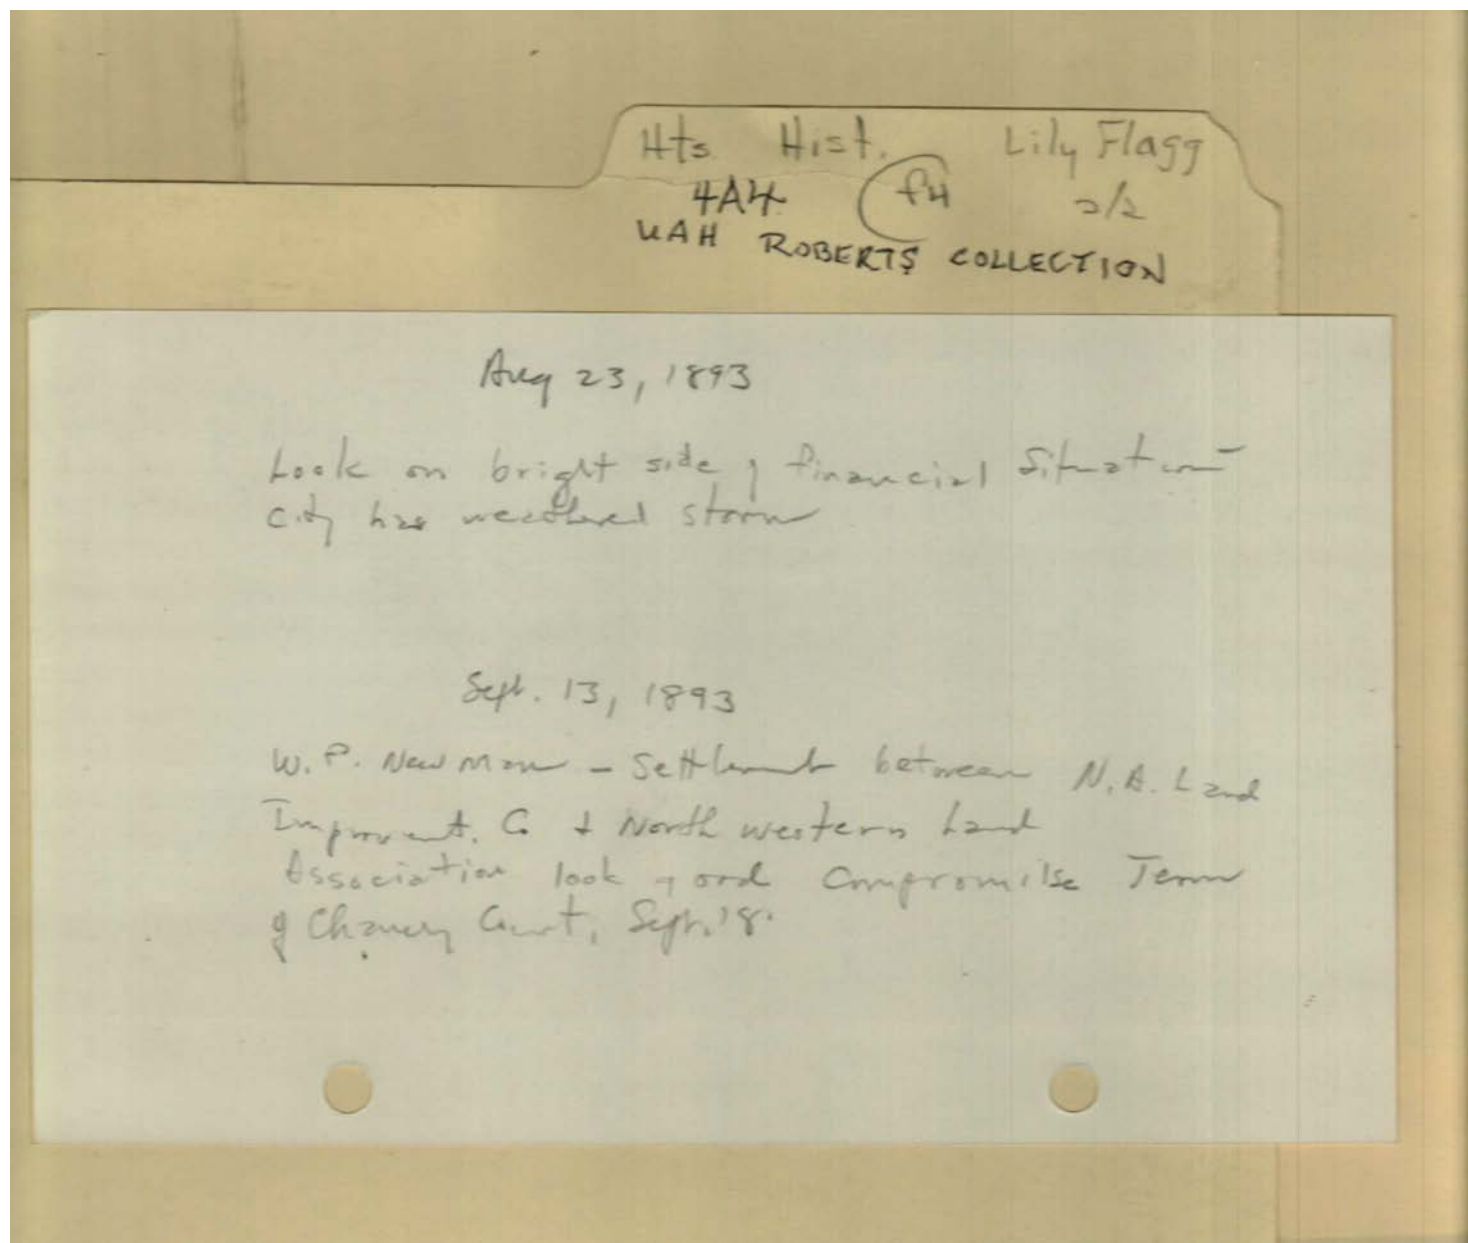 Hts Hist. Lily Flagg
4A4 f4 2/2
UAH ROBERTS COLLECTION
Aug 23, 1893
Look on bright side of financial situation
City has weathered storm
Sept. 13, 1893
W. P. Newman - Settlement between N. A. Land
Improvment. Co & North western Land
Association look good Compromise Term
of Chancery Court, Sept. 18.